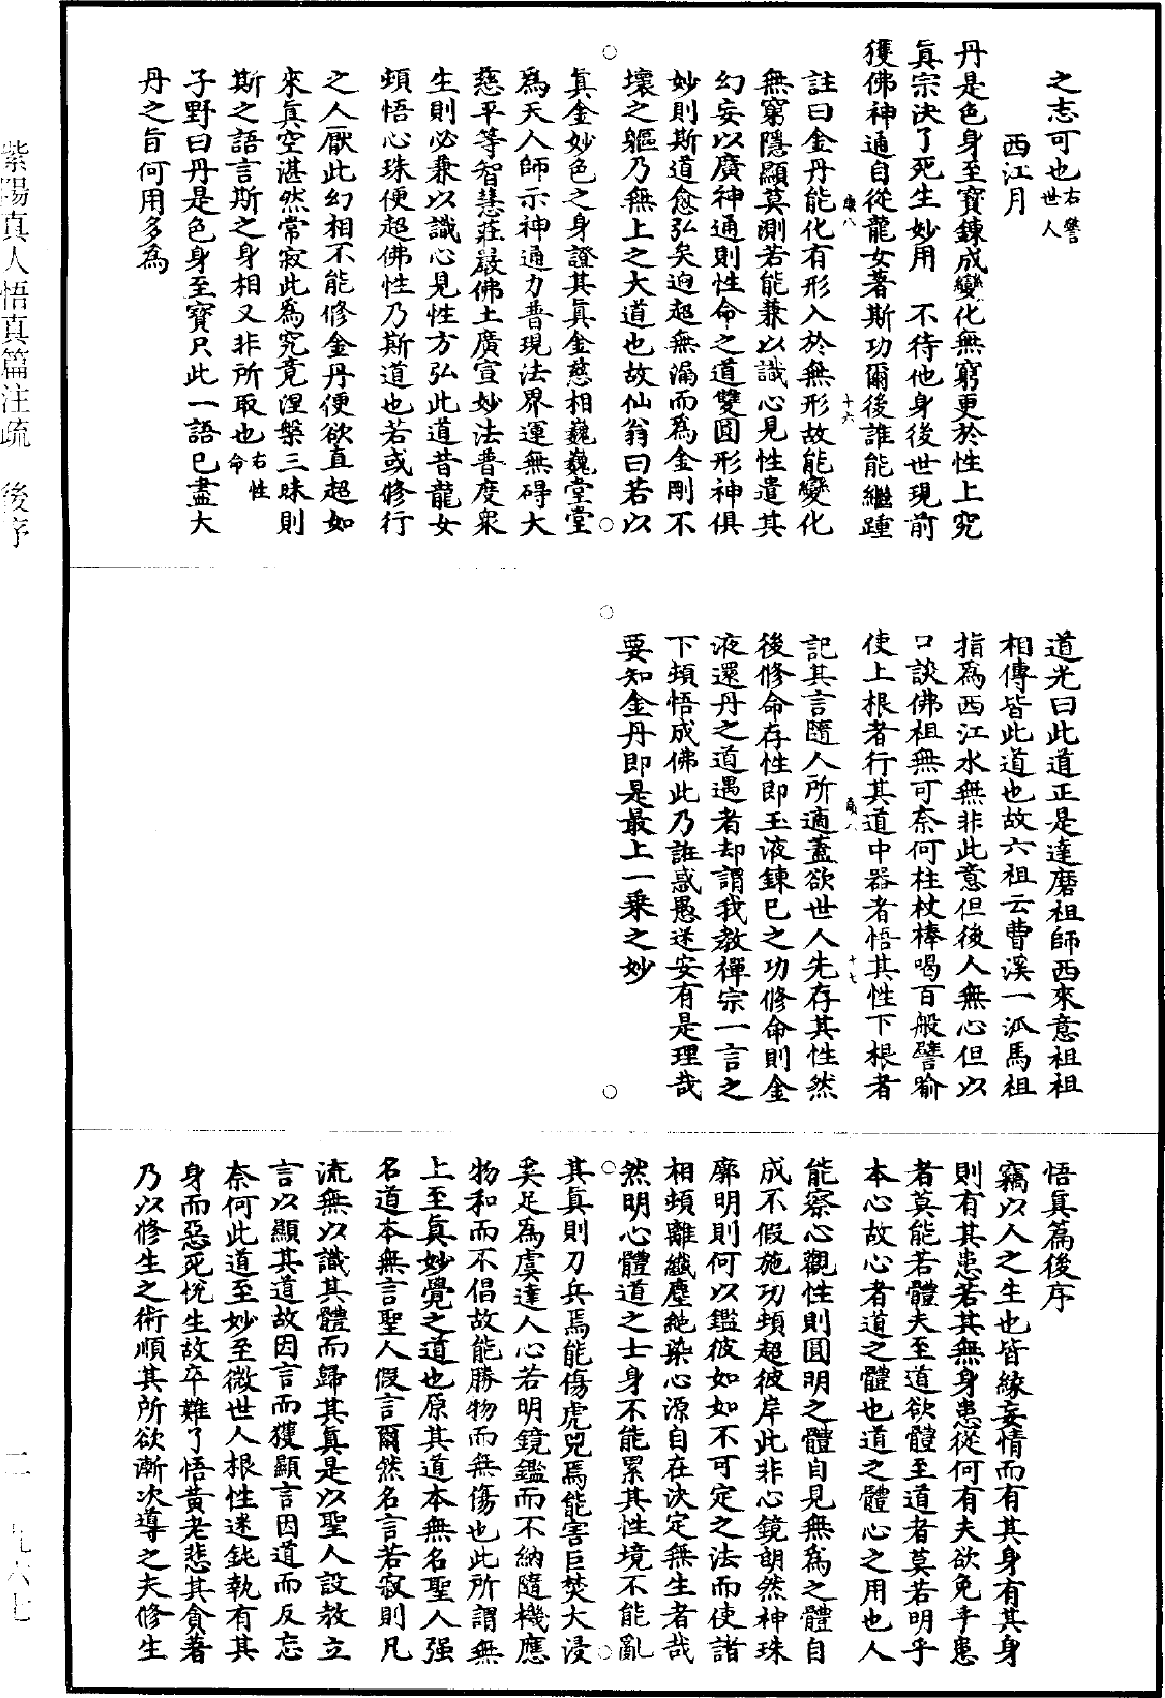 之志可也右警世人
西江月
丹是色身至寶鍊成變化無窮更於性上究
真宗決了死生妙用　不待他身後世現前
獲佛神通自從龍女著斯功爾後誰能繼踵
註曰金丹能化有形入於無形故能變化
無窮隱顯莫測若能兼以識心見性遣其
幻妄以廣神通則性命之道雙圓形神俱
妙則斯道愈弘矣迥超無漏而為金剛不
壞之軀乃無上之大道也故仙翁曰若以
真金妙色之身證其真金慈相巍巍堂堂
為天人師示神通力普現法界運無碍大
慈平等智慧莊嚴佛土廣宣妙法普度衆
生則必兼以識心見性方弘此道昔龍女
頓悟心珠便超佛性乃斯道也若或修行
之人厭此幻相不能修金丹便欲直超如
來真空湛然常寂此為究竟涅槃三昧則
斯之語言斯之身相又非所取也右性命
子野曰丹是色身至寶只此一語已盡大
丹之旨何用多為
道光曰此道正是達磨祖師西來意祖祖
相傳皆此道也故六祖云曹溪一派馬祖
指為西江水無非此意但後人無心但以
口談佛祖無可奈何柱杖棒喝百般譬喻
使上根者行其道中器者悟其性下根者
記其言隨人所適蓋欲世人先存其性然
後修命存性即玉液鍊已之功修命則金
液還丹之道遇者却謂我教禪宗一言之
下頓悟成佛此乃誑惑愚迷安有是理哉
要知金丹即是最上一乘之妙
悟真篇後序
竊以人之生也皆緣妄情而有其身有其身
則有其患若其無身患從何有夫欲免乎患
者莫能若體夫至道欲體至道者莫若明乎
本心故心者道之體也道之體心之用也人
能察心觀性則圓明之體自見無為之體自
成不假施功頓超彼岸此非心鏡朗然神珠
廓明則何以鑑彼如如不可定之法而使諸
相頓離纖塵絶染心源自在決定無生者哉
然明心體道之士身不能累其性境不能亂
其真則刀兵焉能傷虎兕焉能害巨焚大浸
奚足為虞達人心若明鏡鑑而不納隨機應
物和而不倡故能勝物而無傷也此所謂無
上至真妙覺之道也原其道本無名聖人强
名道本無言聖人假言爾然名言若寂則凡
流無以識其體而歸其真是以聖人設教立
言以顯其道故因言而獲顯言因道而反忘
奈何此道至妙至微世人根性迷鈍執有其
身而惡死悅生故卒難了悟黃老悲其貪著
乃以修生之術順其所欲漸次導之夫修生
紫陽真人悟真篇注疏　後序
二　九六七